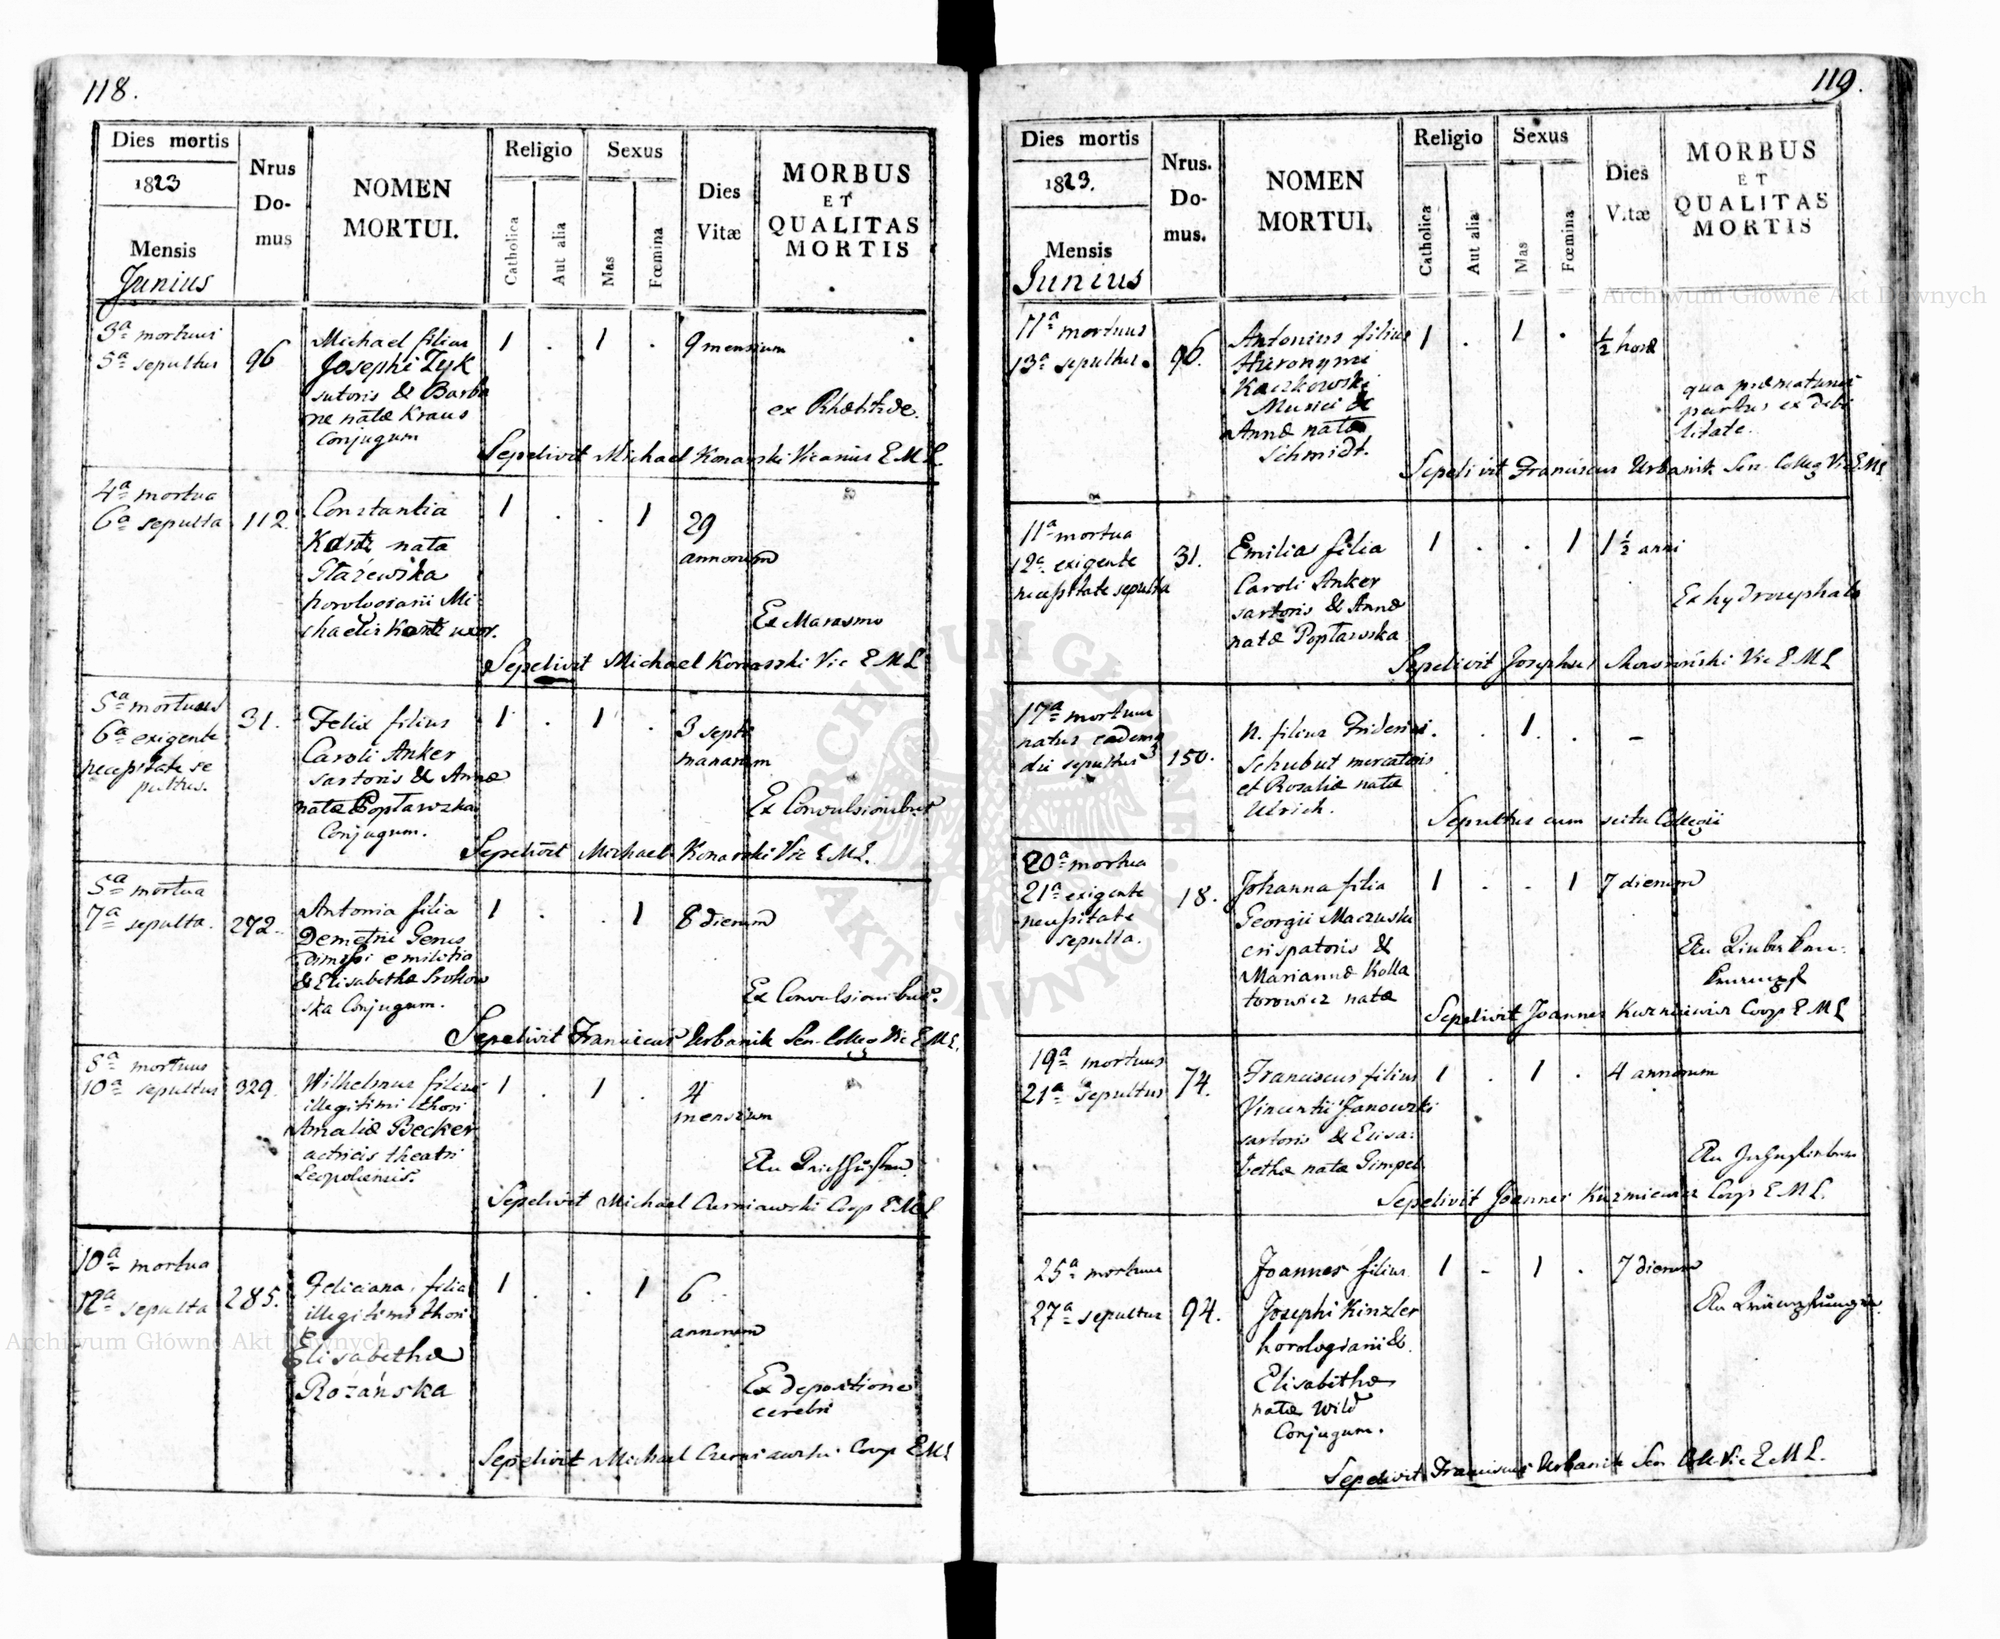 118.
Dies mortis
1823
Mensis
Junius
Nrus
Do-
mus
NOMEN
MORTUI.
Religio
Catholica
Aut alia
Sexus
Mas
Fœmina
Dies
Vitæ
MORBUS
ET
QUALITAS
MORTIS
3ª mortuus
5ª sepultus
96
Michael filius
Josephi Zyk
sutoris & Barba
ræ natæ Kraus
Conjugum
1 . 1 .
9 mensium
ex
Sepelivit Michael Konarski Vicarius E M L.
4ª mortua
6ª sepulta
112.
Constantia
nata
Starewska
Mi
chaelis uxor.
1 . . 1
29
annorum
Ex Marasmo
Sepelivit Michael Konarski Vic E M L
5ª mortuus
6ª exigente
necessitate se
pultus.
31.
Felix filius
Caroli Anker
sartoris & Annæ
natæ Popławska
Conjugum.
1 . 1 .
3 septi
manarum
Ex Convulsionibus
Sepelivit Michael Konarski Vic E M L.
5ª mortua
7ª sepulta.
272.
Antonia filia
Demetrii
dimissi e militia
& Elisabethæ Srokow
ska Conjugum.
1 . . 1
8 dierum
Ex Convulsionibus.
Sepelivit Franciscus Urbanik Sen. Colleg Vic E M L.
8ª mortuus
10ª sepultus
329.
Wilhelmus filius
illegitimi thori
Amaliæ Becker
actricis theatri
Leopoliensis.
1 . 1 .
4
mensium
An
Sepelivit Michael Czerniawski Coop E M L
10ª mortua
12ª sepulta
285.
Feliciana filia
illegitimi thori
Elisabethæ
Rozańska
1 . . 1
6
annorum
Ex depositione
cerebri
Sepelivit Michael Czerniawski Coop E M L
119.
Dies mortis
1823.
Mensis
Junius
Nrus.
Do-
mus.
NOMEN
MORTUI.
Religio
Catholica
Aut alia
Sexus
Mas
Fœmina
Dies
Vitæ
MORBUS
ET
QUALITAS
MORTIS
11ª mortuus
13ª sepultus
96.
Antonius filius
Hieronymi
Kaczkowski
Musici &
Annæ natæ
Schmidt.
1 . 1 .
½ horæ
qua præmaturus
partus ex debi
litate.
Sepelivit Franciscus Urbanik Sen. Colleg Vic E M L
11ª mortua
12ª exigente
necessitate sepulta
31.
Emilia filia
Caroli Anker
sartoris & Annæ
natæ Popławska
1 . . 1
1 ½ anni
Ex hydrocephalo
Sepelivit Josephus Vic E M L
17ª mortuus
natus eademq
die sepultus
150.
N. filius Friderici
Schubut mercatoris
et Rosaliæ natæ
Ulrich.
. . 1 .
–
Sepultus cum scitu Collegii
20ª mortua
21ª exigente
necessitate
sepulta.
18.
Johanna filia
Georgii
crispatoris &
Mariannæ Kolla
torowicz natæ
1 . . 1
7 dierum
An
Sepelivit Joannes Kuzmiewicz Coop E M L
19ª mortuus
21ª sepultus
74.
Franciscus filius
Vincentii Janowski
sartoris & Elisa:
bethæ nata Gimpel
1 . 1 .
4 annorum
An
Sepelivit Joannes Kuzmiewicz Coop E M L.
25ª mortuus
27ª sepultus
94.
Joannes filius
Josephi Kinzler
horologiarii &
Elisabethæ
natæ Wild
Conjugum.
1 - 1 .
7 dierum
An
Sepelivit Franciscus Urbanik Sen Coll. Vic E M L.
Archiwum Główne Akt Dawnych
Archiwum Główne Akt Dawnych
ARCHIWUM GŁÓWNE
AKT DAWNYCH